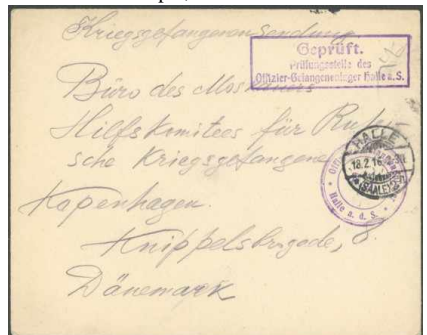 Kriegsgefangenensendung
Geprüft.
Prüfungsstelle des
Offizier-Gefangenenlager Halle a. S.
Büro des Moskauers
Hilfskomitees für Russi-
sche Kriegsgefangene
HALLE
18.2.16
(SAALE)
Halle a. d. S.
Kopenhagen.
Knippelsbrogade, 8.
Dänemark